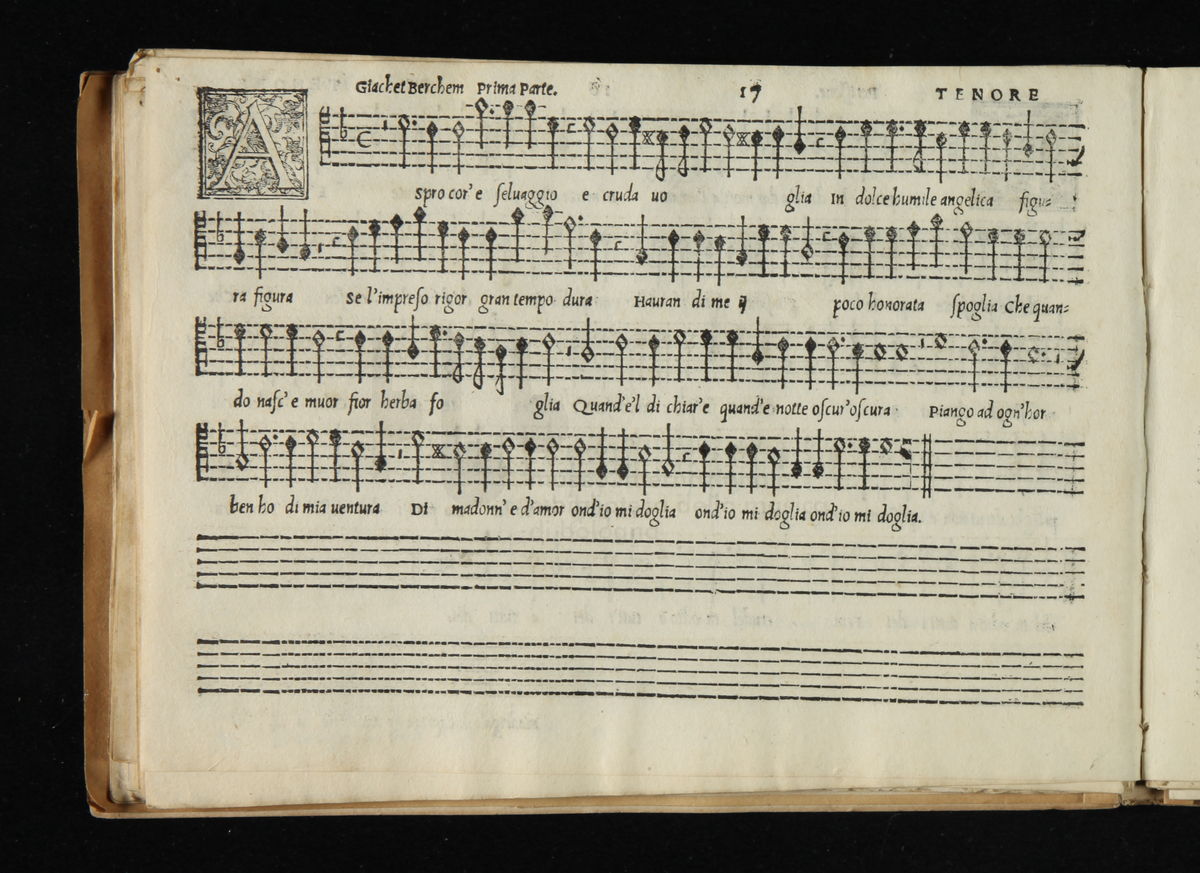 Giachet Berchem Prima Parte. 17 TENORE
A
spro cor' e ſeluaggio e cruda uo glia In dolce humile angelica figu=
ra figura Se l'impreſo rigor gran tempo dura Hauran di me ij poco honorata ſpoglia Che quan=
do naſc' e muor fior herba fo glia Quand'e'l di chiar'e quand'e notte oſcur'oſcura Piango ad ogn'hor
ben ho di mia uentura Di madonn' e d'amor ond'io mi doglia ond'io mi doglia ond'io mi doglia.